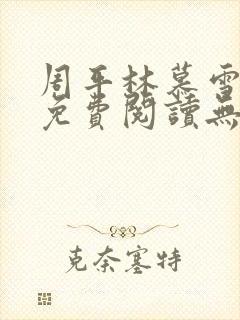 周平林慕雪
免費閱讀無
克奈塞特